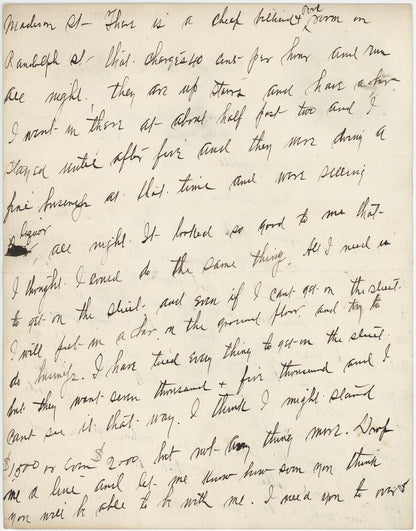 Madison St— There is a cheap billiard & pool room in
Randolph St. that charges 40 cents per hour and run
all night, they are up stairs and have a bar.
I went in there at about half past two and I
played until after five and they were doing a
fine business at that time and were selling
liquor all night. It looked so good to me that
I thought I could do the same thing. All I need is
to get on the street and even if I cant get on the street
I will put in a bar on the ground floor and try to
do business. I have tried every thing to get on the street
but they want seven thousand + five thousand and I
cant see it that way. I think I might stand
$1,500 or even $2000 but not any thing more. Drop
me a line and let me know how soon you think
you will be able to be with me. I need you to over